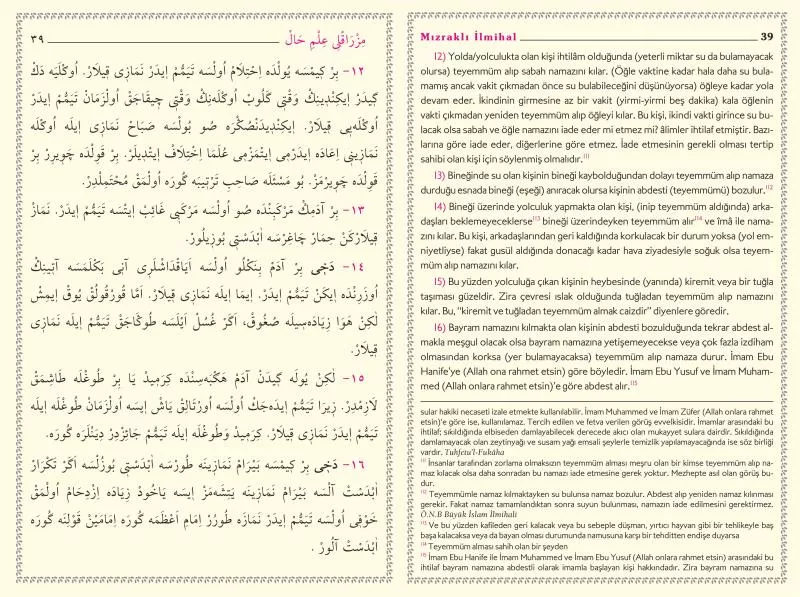 ٣٩ مِزْرَاقْلِى عِلْمِ حَالْ
١٢- بِرْ كِيمْسَه يُولْدَه اِحْتِلَامْ اُولْسَه تَيَمُّمْ اِيدَرْ نَمَازِى قِيلَارْ. اُوكْلَيَه دَكْ
كِيدَرْ اِيكِنْدِينِكْ وَقْتِى كَلُوبْ اُوكْلَه‌نِكْ وَقْتِى چِيقَاجَقْ اُولْزَمَانْ تَيَمُّمْ اِيدَرْ
اُوكْلَه‌يِى قِيلَارْ. اِيكِنْدِيدَنْصُكْرَه صُو بُولْسَه صَبَاحْ نَمَازِى اِيلَه اُوكْلَه
نَمَازِينِى اِعَادَه اِيدَرْمِى اِيتْمَزْمِى عُلَمَا اِخْتِلَافْ اِيتْدِيلَرْ. بِرْ قَوْلْدَه چَوِيرِرْ بِرْ
قَوْلْدَه چَوِيرْمَزْ. بُو مَسْئَلَه صَاحِبِ تَرْتِيبَه كُورَه اُولْمَقْ مُحْتَمِلْدِرْ.
١٣- بِرْ آدَمِكْ مَرْكَبِنْدَه صُو اُولْسَه مَرْكَبِى غَائِبْ اِيتْسَه تَيَمُّمْ اِيدَرْ. نَمَازْ
قِيلَارْكَنْ حِمَارْ چَاغِرْسَه اَبْدَسْتِى بُوزِيلُورْ.
١٤- دَخِى بِرْ آدَمْ بِنَكْلُو اُولْسَه اَيَاقْدَاشْلَرِى آنِى بَكْلَمَسَه آتِينِكْ
اُوزَرِنْدَه اِيكَنْ تَيَمُّمْ اِيدَرْ. اِيمَا اِيلَه نَمَازِى قِيلَارْ. اَمَّا قُورْقُولُقْ يُوقْ اِيمِشْ
لٰكِنْ هَوَا زِيَادَه‌سِيلَه صُغُوقْ، اَكَرْ غُسُلْ اَيْلَسَه طُوكَاجَقْ تَيَمُّمْ اِيلَه نَمَازِى
قِيلَارْ.
١٥- لٰكِنْ يُولَه كِيدَنْ آدَمْ هَكْبَه‌سِنْدَه كِرَمِيدْ يَا بِرْ طُوغْلَه طَاشِمَقْ
لَازِمْدِرْ. زِيرَا تَيَمُّمْ اِيدَه‌جَكْ اُولْسَه اُورْتَالِقْ يَاشْ اِيسَه اُولْزَمَانْ طُوغْلَه اِيلَه
تَيَمُّمْ اِيدَرْ نَمَازِى قِيلَارْ. كِرَمِيدْ وَطُوغْلَه اِيلَه تَيَمُّمْ جَائِزْدِرْ دِيَنْلَرَه كُورَه.
١٦- دَخِى بِرْ كِيمْسَه بَيْرَامْ نَمَازِينَه طُورْسَه اَبْدَسْتِى بُوزُلْسَه اَكَرْ تَكْرَارْ
اَبْدَسْتْ آلْسَه بَيْرَامْ نَمَازِينَه يَتِشَه‌مَزْ اِيسَه يَاخُودْ زِيَادَه اِزْدِحَامْ اُولْمَقْ
خَوْفِى اُولْسَه تَيَمُّمْ اِيدَرْ نَمَازَه طُورُرْ اِمَامِ اَعْظَمَه كُورَه اِمَامَيْنْ قَوْلِنَه كُورَه
اَبْدَسْتْ آلُورْ.
Mızraklı İlmihal 39
12) Yolda/yolculukta olan kişi ihtilâm olduğunda (yeterli miktar su da bulamayacak
olursa) teyemmüm alıp sabah namazını kılar. (Öğle vaktine kadar hala daha su bula-
mamış ancak vakit çıkmadan önce su bulabileceğini düşünüyorsa) öğleye kadar yola
devam eder. İkindinin girmesine az bir vakit (yirmi-yirmi beş dakika) kala öğlenin
vakti çıkmadan yeniden teyemmüm alıp öğleyi kılar. Bu kişi, ikindi vakti girince su bu-
lacak olsa sabah ve öğle namazını iade eder mi etmez mi? âlimler ihtilaf etmiştir. Bazı-
larına göre iade eder, diğerlerine göre etmez. İade etmesinin gerekli olması tertip
sahibi olan kişi için söylenmiş olmalıdır.¹¹
13) Bineğinde su olan kişinin bineği kaybolduğundan dolayı teyemmüm alıp namaza
durduğu esnada bineği (eşeği) anıracak olursa kişinin abdesti (teyemmümü) bozulur.¹²
14) Bineği üzerinde yolculuk yapmakta olan kişi, (inip teyemmüm aldığında) arka-
daşları beklemeyeceklerse¹³ bineği üzerindeyken teyemmüm alır¹⁴ ve îmâ ile nama-
zını kılar. Bu kişi, arkadaşlarından geri kaldığında korkulacak bir durum yoksa (yol em-
niyetliyse) fakat gusül aldığında donacağı kadar hava ziyadesiyle soğuk olsa teyem-
müm alıp namazını kılar.
15) Bu yüzden yolculuğa çıkan kişinin heybesinde (yanında) kiremit veya bir tuğla
taşıması güzeldir. Zira çevresi ıslak olduğunda tuğladan teyemmüm alıp namazını
kılar. Bu, "kiremit ve tuğladan teyemmüm almak caizdir" diyenlere göredir.
16) Bayram namazını kılmakta olan kişinin abdesti bozulduğunda tekrar abdest al-
makla meşgul olacak olsa bayram namazına yetişemeyecekse veya çok fazla izdiham
olmasından korksa (yer bulamayacaksa) teyemmüm alıp namaza durur. İmam Ebu
Hanife'ye (Allah ona rahmet etsin) göre böyledir. İmam Ebu Yusuf ve İmam Muham-
med (Allah onlara rahmet etsin)'e göre abdest alır.¹⁵
sular hakiki necaseti izale etmekte kullanılabilir. İmam Muhammed ve İmam Züfer (Allah onlara rahmet
etsin)'e göre ise, kullanılamaz. Tercih edilen ve fetva verilen görüş evvelkisidir. İmamlar arasındaki bu
ihtilaf; sıkıldığında elbiseden damlayabilecek derecede akıcı olan mukayyet sulara dairdir. Sıkıldığında
damlamayacak olan zeytinyağı ve susam yağı emsali şeylerle temizlik yapılamayacağında ise söz birliği
vardır. Tuhfetu'l-Fukâha
¹¹ İnsanlar tarafından zorlama olmaksızın teyemmüm alması meşru olan bir kimse teyemmüm alıp na-
maz kılacak olsa daha sonradan bu namazı iade etmesine gerek yoktur. Mezhepte asıl olan görüş bu-
dur.
¹² Teyemmümle namaz kılmaktayken su bulunsa namaz bozulur. Abdest alıp yeniden namaz kılınması
gerekir. Fakat namaz tamamlandıktan sonra suyun bulunması, namazın iade edilmesini gerektirmez.
Ö.N.B Büyük İslam İlmihali
¹³ Ve bu yüzden kafileden geri kalacak veya bu sebeple düşman, yırtıcı hayvan gibi bir tehlikeyle baş
başa kalacaksa veya da bayan olması durumunda namusuna karşı bir tehditten endişe duyarsa
¹⁴ Teyemmüm alması sahih olan bir şeyden
¹⁵ İmam Ebu Hanife ile İmam Muhammed ve İmam Ebu Yusuf (Allah onlara rahmet etsin) arasındaki bu
ihtilaf bayram namazına abdestli olarak imamla başlayan kişi hakkındadır. Zira bayram namazına su